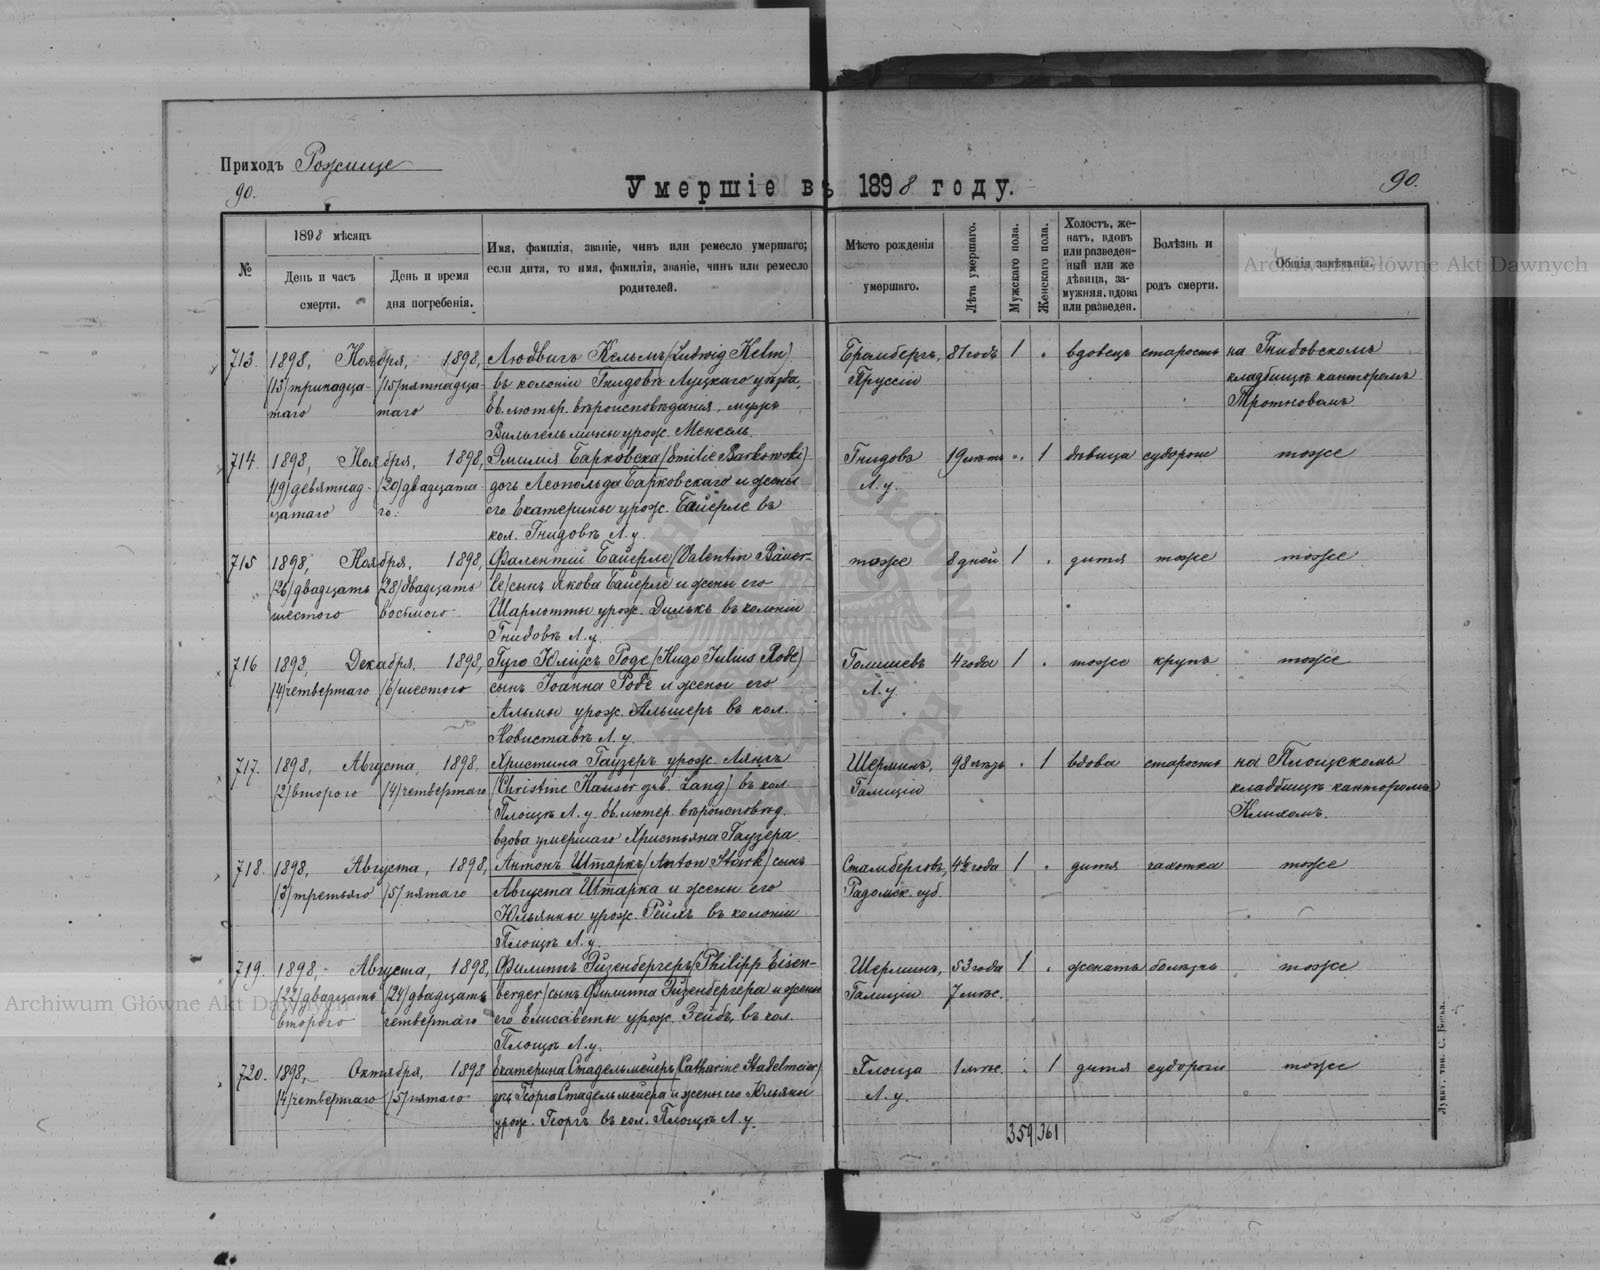 Приходъ Рожище
90.
Умершіе въ 1898 году.
90.
№
1898 мѣсяцъ
День и часъ смерти.
День и время дня погребенія.
Имя, фамилія, званіе, чинъ или ремесло умершаго; если дитя, то имя, фамилія, званіе, чинъ или ремесло родителей.
Мѣсто рожденія умершаго.
Лѣта умершаго.
Мужскаго пола.
Женскаго пола.
Холостъ, женатъ, вдовъ или разведенный или же дѣвица, замужняя, вдова или разведен.
Болѣзнь и родъ смерти.
Общія замѣчанія.
713. 1898, Ноября, 1898, Людвигъ Кельмъ (Ludwig Kelm) Бромбергъ, 81 годъ 1 вдовецъ старость на Гнидовскомъ
(13) тринадца- (15) пятнадца въ колоніи Гнидовѣ Луцкаго уѣзда, Пруссіи кладбищѣ канторомъ
таго таго Ев. лютер. вѣроисповѣданія, мужъ
Вильгельмины урож. Менсель.
714. 1898, Ноября, 1898, Эмилія Барковска (Emilie Barkowski) Гнидовъ 19 лѣтъ 1 дѣвица судорои тоже
(19) девятнад- (20) двадцата дочь Леопольда Барковскаго и жены Л. у.
цатаго го. его Екатерины урож. Байерле въ
кол. Гнидовѣ Л. у.
715 1898, Ноября, 1898, Фалентій Байерле (Valentin Bäuer- тоже 8 дней 1 дитя тоже тоже
(26) двадцать (28) двадцать le) сынъ Якова Байерле и жены его
шестого восьмого Шарлотты урож. Дилькъ въ колоніи
Гнидовѣ Л. у.
716 1898, Декабря, 1898, Гуго Юліусъ Роде (Hugo Julius Rode) Голишевъ 4 года 1 тоже крупъ тоже
(4) четвертаго (6) шестого сынъ Іоанна Роде и жены его Л. у
Альмы урож. Альшеръ въ кол.
Новиставѣ Л. у.
717. 1898, Августа, 1898, Христина Гаузеръ урож. Лянгъ Шерминъ, 98 лѣтъ 1 вдова старость на Площскомъ
(2) второго (4) четвертаго (Christine Hauser geb. Lang) въ кол. Галиціи кладбищѣ канторомъ
Площѣ Л. у. Ев. лютер. вѣроисповѣд.
вдова умершаго Христьяна Гаузера
718. 1898, Августа, 1898, Антонъ Штаркъ (Anton Stark) сынъ 1 дитя чахотка тоже
(3) третьяго (5) пятаго Августа Штарка и жены его Радомск. губ.
Юльянны урож. Геймъ въ колоніи
Площѣ Л. у.
719. 1898, Августа, 1898, Филиппъ Эйзенбергеръ (Philipp Eisen- Шерминъ, 53 года 1 женатъ болѣзнь тоже
(22) двадцать (24) двадцать berger) сынъ Филиппа Эйзенбергера и жены Галиціи 7 мѣс.
второго четвертаго его Елисаветы урож. Зейбъ, въ кол.
Площѣ Л. у.
720. 1898, Октября, 1898 Екатерина Стадельмейеръ (Catharine Stadelmeier) Площа 1 мѣс. 1 дитя судороги тоже
(4) четвертаго (5) пятаго дочь Георга Стадельмейера и жены его Юльяны Л. у.
урож. Георгъ въ кол. Площѣ Л. у.
359 361
Archiwum Główne Akt Dawnych
Archiwum Główne Akt Dawnych